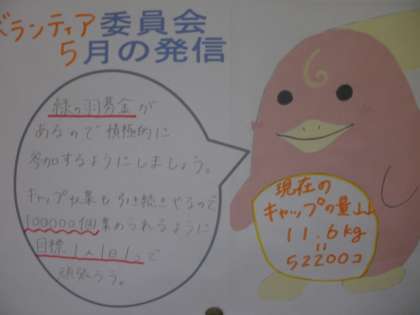 ボランティア委員会
5月の発信
緑の羽募金が
あるので積極的に
参加するようにしましょう。
キャップ収集も引き続きやるので
100000個集められるように
目標1人1日1コで
頑張ろう。
現在の
キャップの量は
11.6kg
=
52200コ